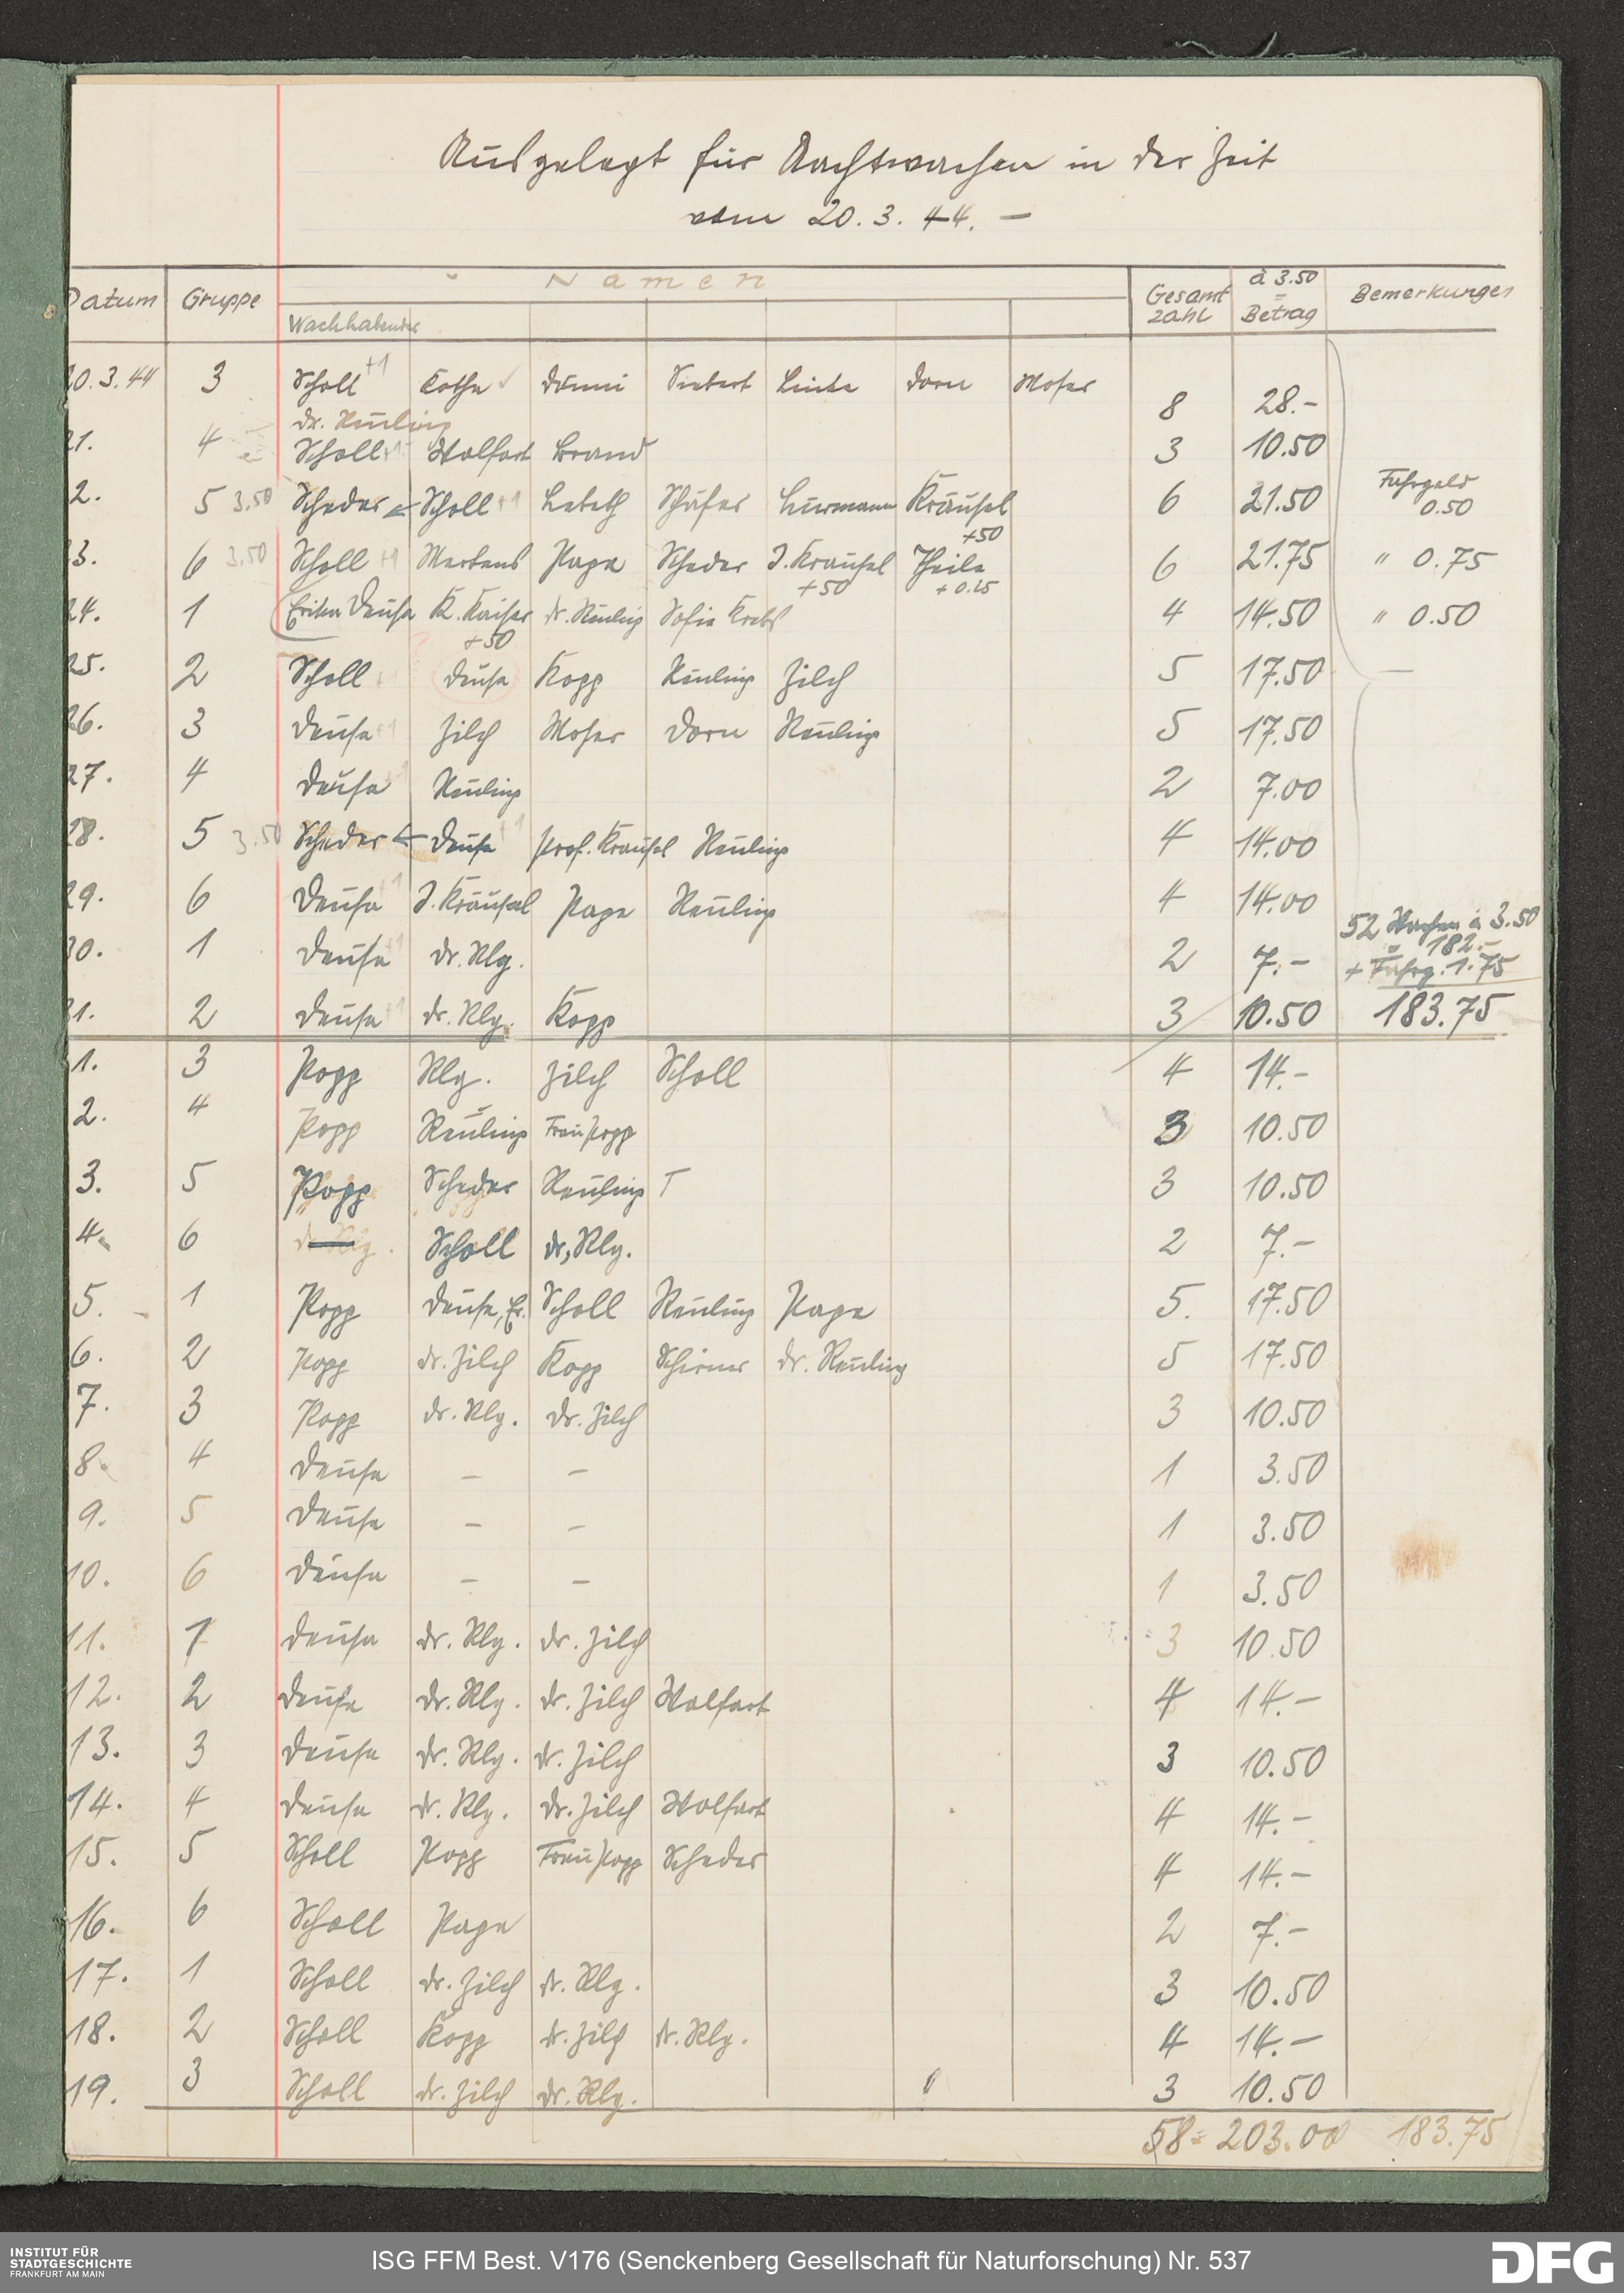 Ausgelegt für Nachtwachen in der Zeit
vom 20.3.44. —
Namen
Datum Gruppe Wachhabender Gesamtzahl à 3.50 = Betrag Bemerkungen
20.3.44 3 Scholl +1 Cothe Siebert Linke Dorn Moser 8 28.-
Dr. Reuling
21. 4 Scholl +1 Wolfart Brand 3 10.50
2. 5 3.50 Scheder Scholl +1 Lebeth Schäfer Kräusel 6 21.50 Fahrgeld 0.50
+50
3. 6 3.50 Scholl +1 Mertens Pape Scheder J. Kräusel Theile 6 21.75 " 0.75
+50 + 0.25
24. 1 Erika Deuse K. Kaiser Dr. Reuling Sofie Krebs 4 14.50 " 0.50
+50
25. 2 Scholl +1 Deuse Kopp Reuling Zilch 5 17.50 —
26. 3 Deuse +1 Zilch Moser Dorn Reuling 5 17.50
27. 4 Deuse +1 Reuling 2 7.00
28. 5 3.50 Scheder Deuse +1 Prof. Kräusel Reuling 4 14.00
29. 6 Deuse +1 J. Kräusel Pape Reuling 4 14.00
52 Wachen à 3.50
30. 1 Deuse +1 Dr. Rlg. 2 7.- = 182.-
+ Fahrg. 1.75
31. 2 Deuse +1 Dr. Rlg. Kopp 3 10.50 183.75
1. 3 Popp Rlg. Zilch Scholl 4 14.-
2. 4 Popp Reuling Frau Popp 3 10.50
3. 5 Popp Scheder Reuling T 3 10.50
4. 6 Dr. Rlg. Scholl Dr. Rlg. 2 7.-
5. 1 Popp Deuse, Er. Scholl Reuling Pape 5. 17.50
6. 2 Popp Dr. Zilch Kopp Schirmer Dr. Reuling 5 17.50
7. 3 Popp Dr. Rlg. Dr. Zilch 3 10.50
8. 4 Deuse — — 1 3.50
9. 5 Deuse — — 1 3.50
10. 6 Deuse — — 1 3.50
11. 1 Deuse Dr. Rlg. Dr. Zilch 3 10.50
12. 2 Deuse Dr. Rlg. Dr. Zilch Wolfart 4 14.-
13. 3 Deuse Dr. Rlg. Dr. Zilch 3 10.50
14. 4 Deuse Dr. Rlg. Dr. Zilch Wolfart 4 14.-
15. 5 Scholl Popp Frau Popp Scheder 4 14.-
16. 6 Scholl Pape 2 7.-
17. 1 Scholl Dr. Zilch Dr. Rlg. 3 10.50
18. 2 Scholl Kopp Dr. Zilch Dr. Rlg. 4 14.-
19. 3 Scholl Dr. Zilch Dr. Rlg. 3 10.50
58 = 203.00 183.75
INSTITUT FÜR
STADTGESCHICHTE
FRANKFURT AM MAIN
ISG FFM Best. V176 (Senckenberg Gesellschaft für Naturforschung) Nr. 537
DFG